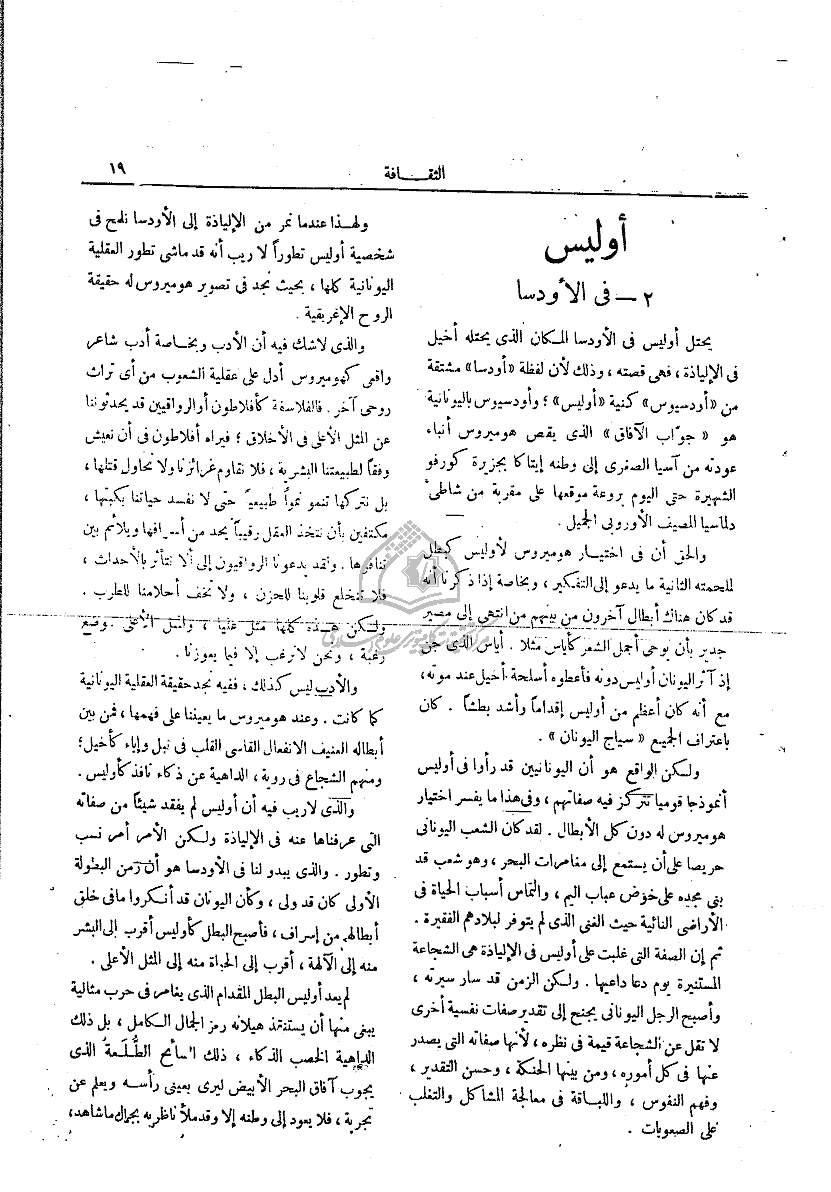 ١٩
الثقــافة
أوليس
٢ — فى الأودسا
يحتل أوليس فى الأودسا المكان الذى يحتله أخيل
فى الإلياذة ، فهى قصته ، وذلك لأن لفظة «أودسا» مشتقة
من «أودسيوس» كنية «أوليس» ؛ وأودسيوس باليونانية
هو « جوّاب الآفاق» الذى يقص هوميروس أنباء
عودته من آسيا الصغرى إلى وطنه إيتاكا بجزيرة كورفو
الشهيرة حتى اليوم بروعة موقعها على مقربة من شاطئ
دلماسيا المصيف الأوروبى الجميل .
والحق أن فى اختيار هوميروس لأوليس كبطل
لملحمته الثانية ما يدعو إلى التفكير ، وبخاصة إذا ذكرنا أنه
قد كان هناك أبطال آخرون من بينهم من انتهى إلى مصير
جدير بأن يوحى أجمل الشعر كأياس مثلا . أياس الذى جن
إذ آثر اليونان أوليس دونه فأعطوه أسلحة أخيل عند موته ،
مع أنه كان أعظم من أوليس إقداماً وأشد بطشاً . كان
باعتراف الجميع « سياج اليونان » .
ولكن الواقع هو أن اليونانيين قد رأوا فى أوليس
أنموذجا قوميا تتركز فيه صفاتهم ، وفى هذا ما يفسر اختيار
هوميروس له دون كل الأبطال . لقد كان الشعب اليونانى
حريصا على أن يستمع إلى مغامرات البحر ، وهو شعب قد
بنى مجده على خوض عباب اليم ، والتماس أسباب الحياة فى
الأراضى النائية حيث الغنى الذى لم يتوفر لبلادهم الفقيرة .
ثم إن الصفة التى غلبت على أوليس فى الإلياذة هى الشجاعة
المستنيرة يوم دعا داعيها . ولكن الزمن قد سار سيرته ،
وأصبح الرجل اليونانى يجنح إلى تقدير صفات نفسية أخرى
لا تقل عن الشجاعة قيمة فى نظره ، لأنها صفاته التى يصدر
عنها فى كل أموره ، ومن بينها الحنكة ، وحسن التقدير ،
وفهم النفوس ، واللباقة فى معالجة المشاكل والتغلب
على الصعوبات .
ولهـذا عندما نمر من الإلياذة إلى الأودسا نلمح فى
شخصية أوليس تطوراً لا ريب أنه قد ماشى تطور العقلية
اليونانية كلها ، بحيث نجد فى تصوير هوميروس له حقيقة
الروح الإغريقية .
والذى لا شك فيه أن الأدب وبخاصة أدب شاعر
واقعى كهوميروس أدل على عقلية الشعوب من أى تراث
روحى آخر . فالفلاسفة كأفلاطون أو الرواقيين قد يحدثوننا
عن المثل الأعلى فى الأخلاق ؛ فيراه أفلاطون فى أن نعيش
وفقاً لطبيعتنا البشرية ، فلا نقاوم غرائزنا ولا نحاول قتلها ،
بل نتركها تنمو نمواً طبيعياً حتى لا نفسد حياتنا بكبتها ،
مكتفين بأن نتخذ العقل رقيباً يحد من أسرافها ويلائم بين
تنافرها . ولقد يدعونا الرواقيون إلى ألا نتأثر بالأحداث ،
فلا تنخلع قلوبنا للحزن ، ولا تخف أحلامنا للطرب .
ولكن هـذه كلها مثل عليا ، والمثل الأعلى وضع
رغبة ، ونحن لا نرغب إلا فيما يعوزنا .
والأدب ليس كذلك ، ففيه نجد حقيقة العقلية اليونانية
كما كانت . وعند هوميروس ما يعيننا على فهمها ، فمن بين
أبطاله العنيف الانفعال القاسى القلب فى نبل وإباء كأخيل ؛
ومنهم الشجاع فى روية ، الداهية عن ذكاء نافذ كأوليس .
والذى لا ريب فيه أن أوليس لم يفقد شيئاً من صفاته
التى عرفناها عنه فى الإلياذة ولكن الأمر أمر نسب
وتطور . والذى يبدو لنا فى الأودسا هو أن زمن البطولة
الأولى كان قد ولى ، وكأن اليونان قد أنكروا ما فى خلق
أبطالهم من إسراف ، فأصبح البطل كأوليس أقرب إلى البشر
منه إلى الآلهة ، أقرب إلى الحياة منه إلى المثل الأعلى .
لم يعد أوليس البطل المقدام الذى يغامر فى حرب مثالية
يبغى منها أن يستنقذ هيلانه رمز الجمال الكامل ، بل ذلك
الداهية الخصب الذكاء ، ذلك السائح الطُّلَعة الذى
يجوب آفاق البحر الأبيض ليرى بعينى رأسـه ويعلم عن
تجربة ، فلا يعود إلى وطنه إلا وقد ملأ ناظريه بجمال ما شاهد ،